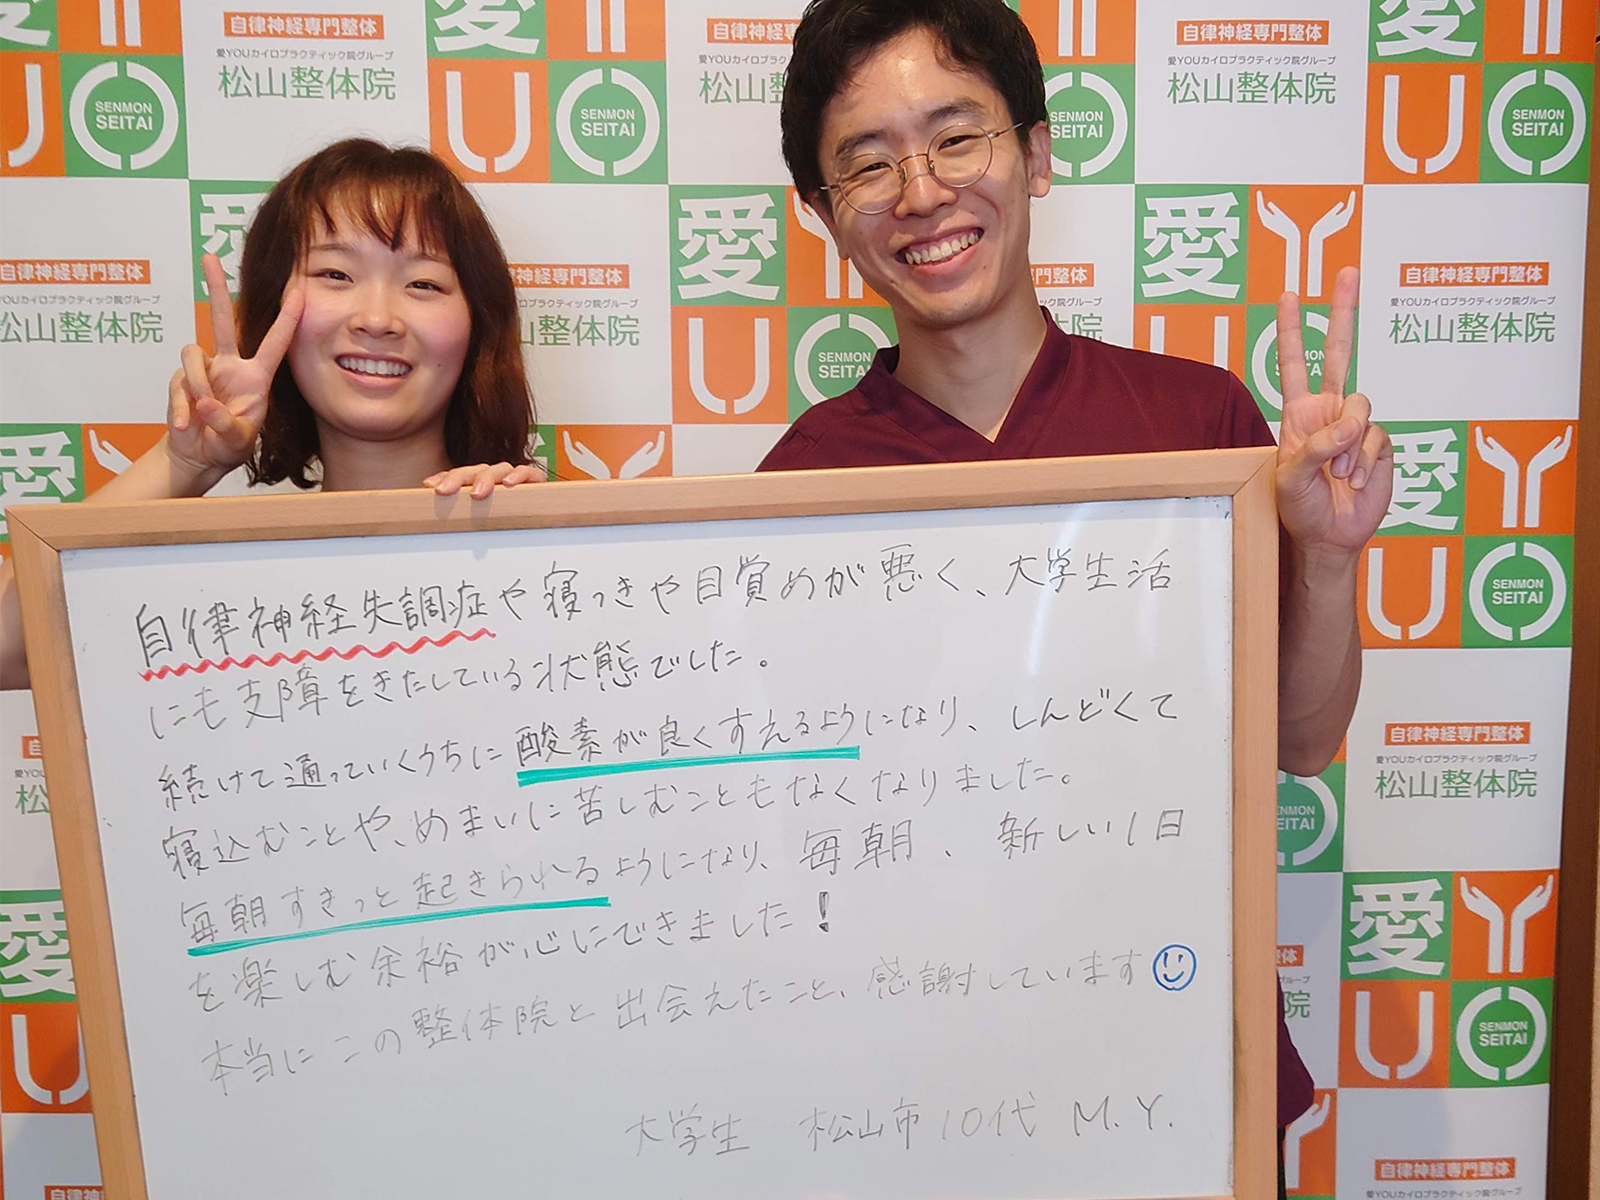 自律神経専門整体
愛YOUカイロプラクティック院グループ
松山整体院
愛YOU
SENMON
SEITAI
自律神経失調症や寝つきや目覚めが悪く、大学生活
にも支障をきたしている状態でした。
続けて通っていくうちに酸素が良くすえるようになり、しんどくて
寝込むことや、めまいに苦しむこともなくなりました。
毎朝すきっと起きられるようになり、毎朝、新しい1日
を楽しむ余裕が心にできました!
本当にこの整体院と出会えたこと、感謝しています
大学生 松山市10代 M.Y.